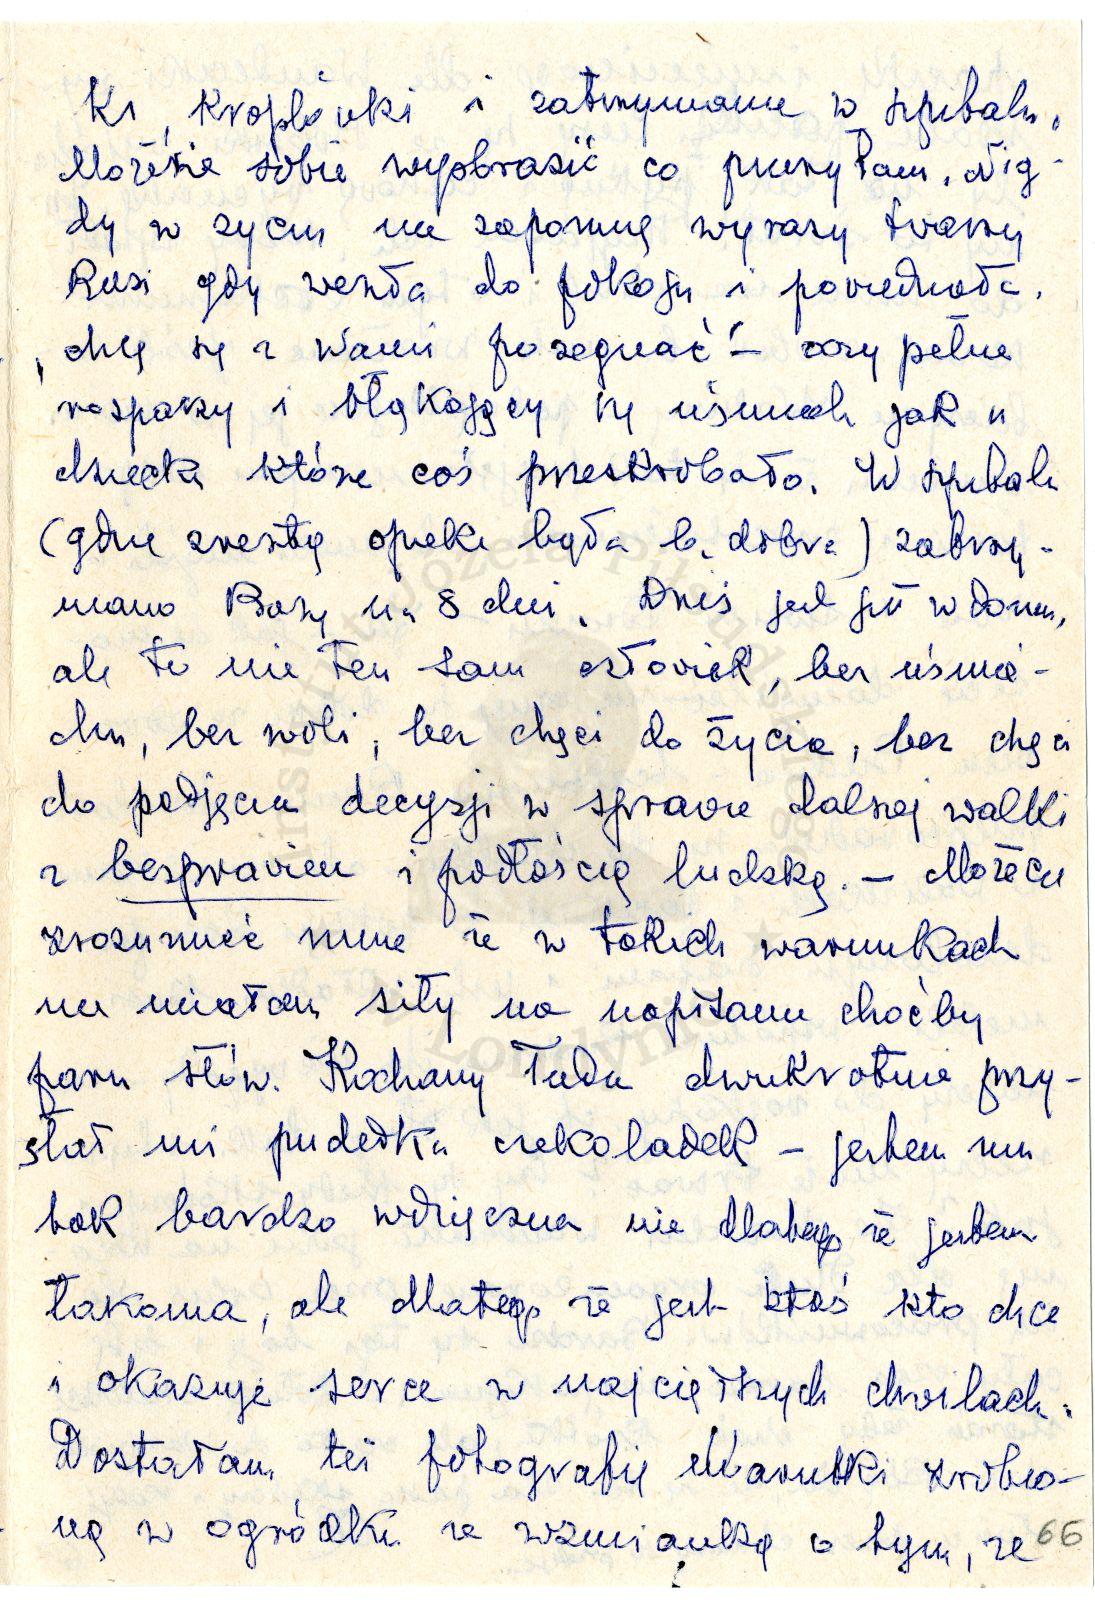 ki, kroplówki i zatrzymanie w szpitalu.
Możecie sobie wyobrazić co przeżyłam. Nig-
dy w życiu nie zapomnę wyrazy twarzy
Rosi gdy weszła do pokoju i powiedziała.
"chcę się z Wami pożegnać" – oczy pełne
rozpaczy i błąkający się uśmiech jak u
dziecka które coś przeskrobało. W szpitalu
(gdzie zresztą opieka była b. dobra) zatrzy-
mano na 8 dni. Dziś jest już w domu,
ale to nie ten sam człowiek, bez uśmie-
chu, bez woli, bez chęci do życia, bez chęci
do podjęcia decyzji w sprawie dalszej walki
z bezprawiem i podłością ludzką. – Możecie
zrozumieć mnie że w takich warunkach
nie miałam siły na napisanie choćby
paru słów. Kochany Tadzio dwukrotnie przy-
słał mi pudełka czekoladek – jestem mu
tak bardzo wdzięczna nie dlatego że jestem
łakoma, ale dlatego że jest ktoś kto chce
i okazuje serce w najcięższych chwilach.
Dostałam też fotografię zrobio-
ną w ogródku ze wzmianką o tym, że
66
Instytut Józefa Piłsudskiego
w Londynie